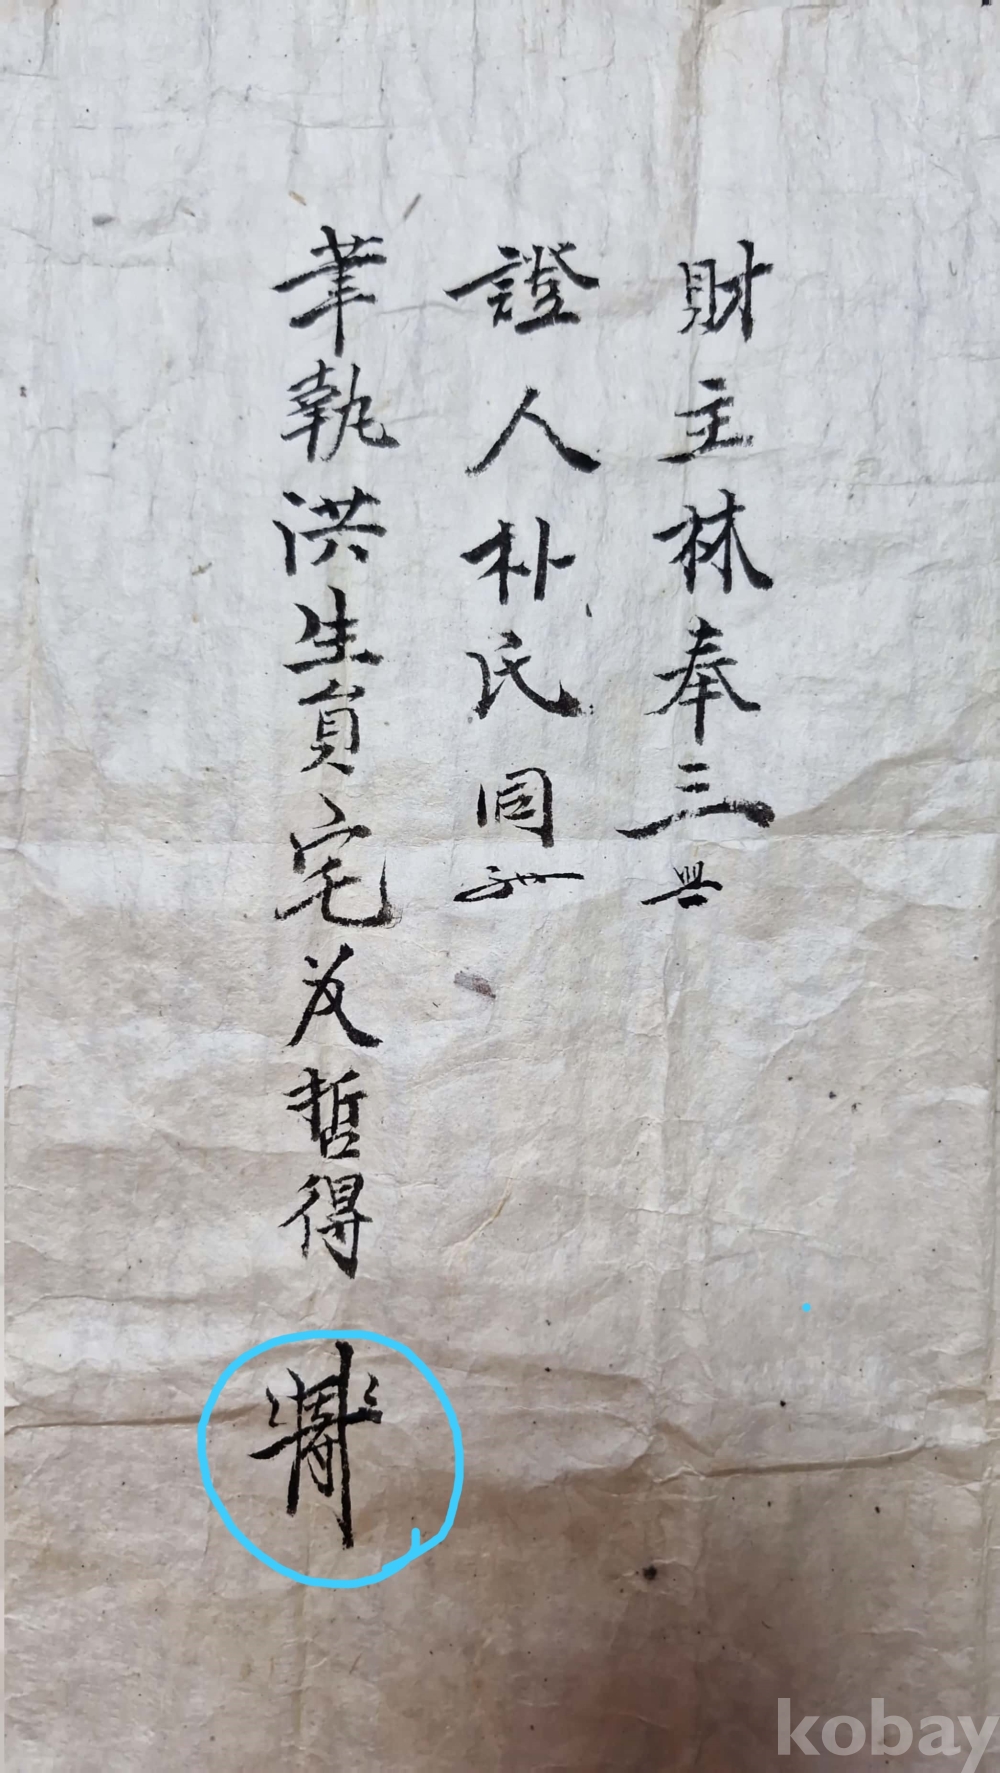 財主林奉三
證人朴氏同
筆執洪生員宅奴哲得
kobay